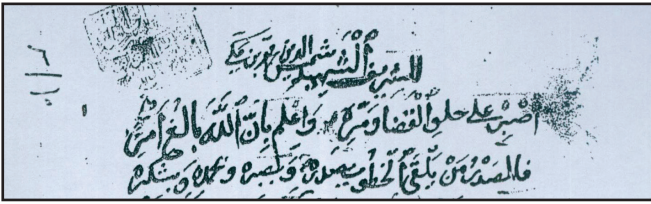 للشريف الشهيد شمس الدين محمد بن مكي
اصبر على حلو القضا ومره واعلم بان الله بالغ امره
فالصدر من يلقى الخطوب بصدره وبصبره وبحمده وبشكره